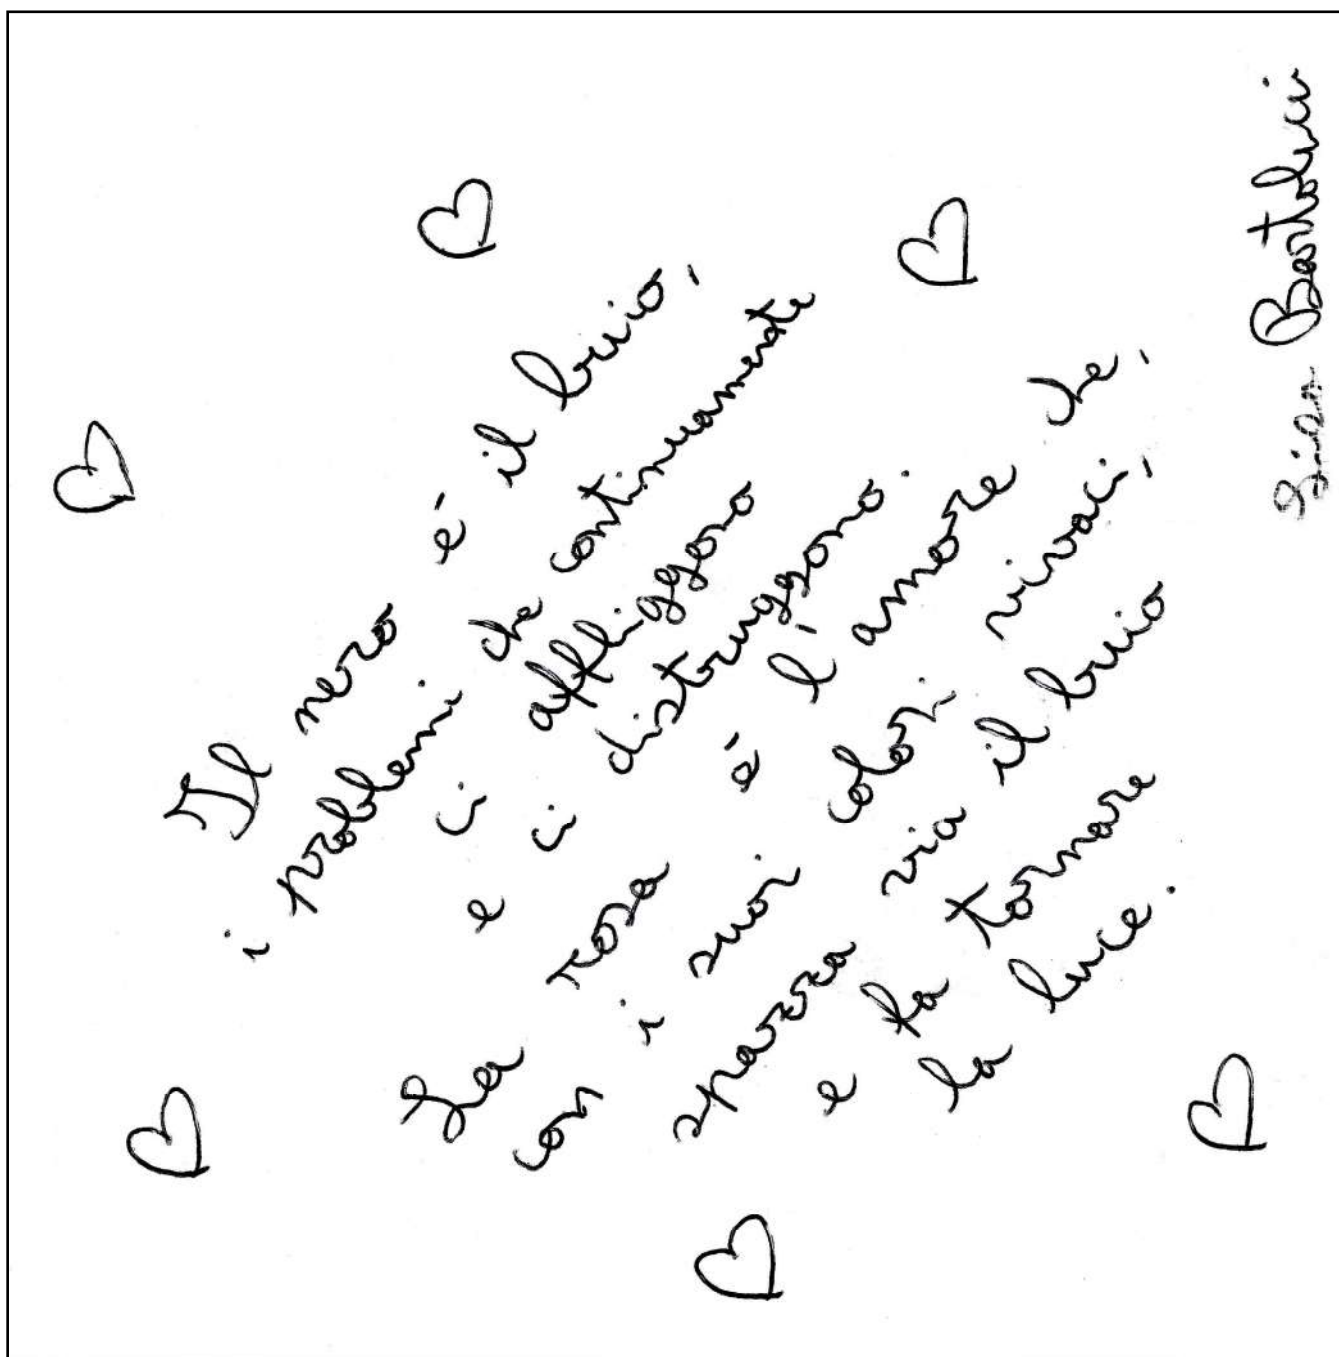 Il nero é il buio,
i problemi che continuamente
ci affliggono
e ci distruggono.
La rosa é l'amore che,
con i suoi colori vivaci,
spazza via il buio
e fa tornare
la luce.
Bartolucci